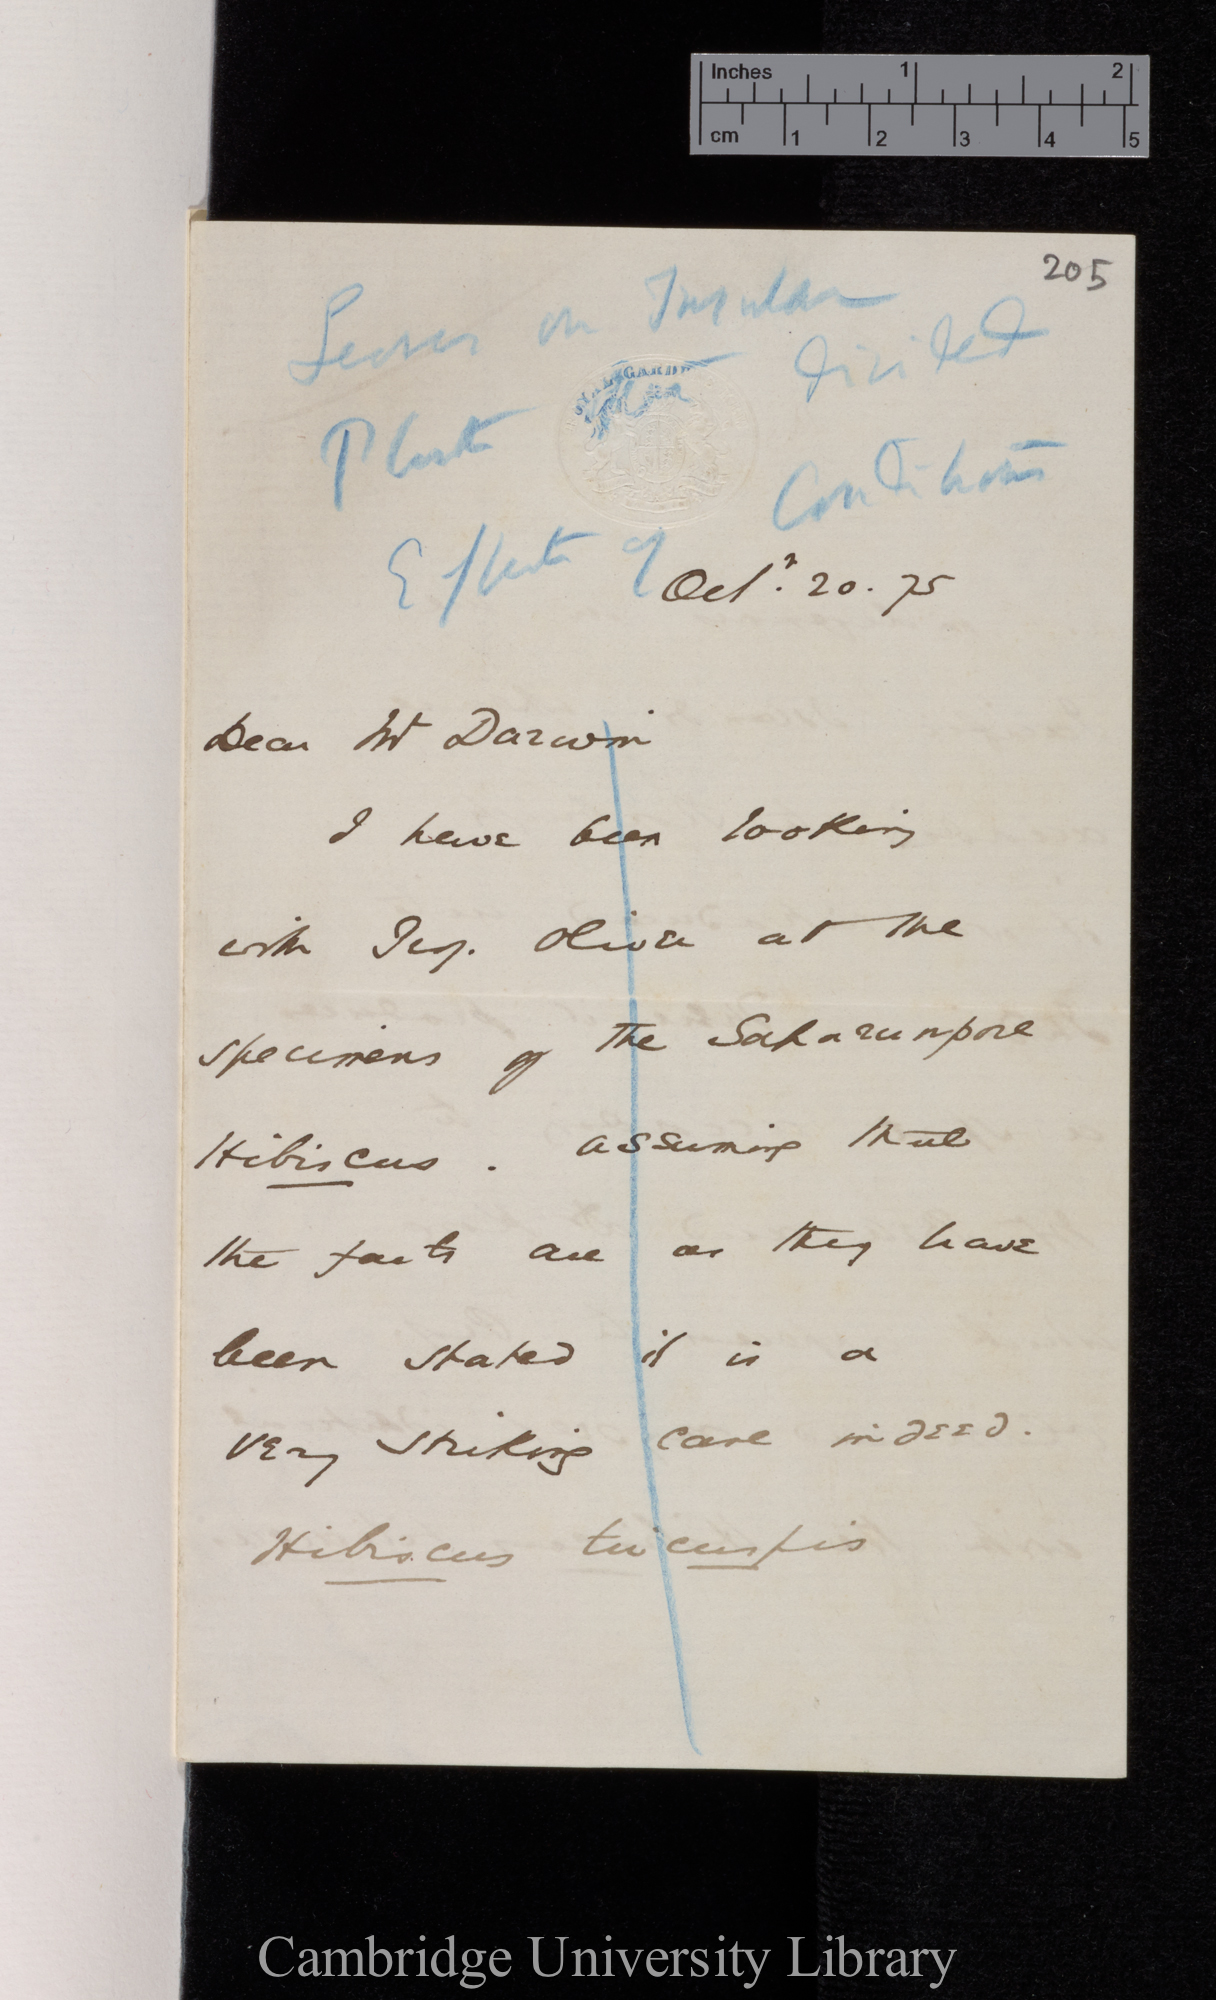 Inches 1 2
cm 1 2 3 4 5
205
Leaves on Insular
Plants also divided
Effects of Conditions
GARDE
Octr. 20. 75
Dear Mr Darwin
I have been looking
with Prof. Oliver at the
specimens of the Saharunpore
Hibiscus. assuming that
the facts are as they have
been stated it is a
very striking case indeed.
Hibiscus tricuspis
Cambridge University Library